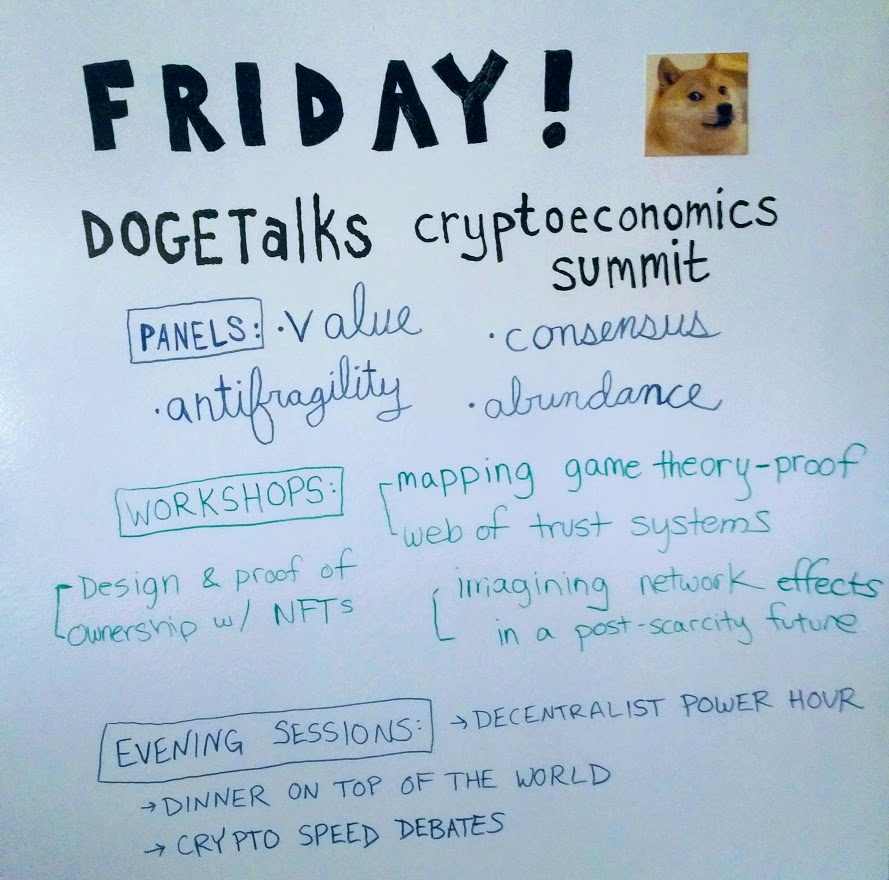 FRIDAY!
DOGETalks cryptoeconomics
summit
PANELS: · value · consensus
· antifragility · abundance
WORKSHOPS: mapping game theory-proof
web of trust systems
Design & proof of
ownership w/ NFTs
imagining network effects
in a post-scarcity future
EVENING SESSIONS: → DECENTRALIST POWER HOUR
→ DINNER ON TOP OF THE WORLD
→ CRYPTO SPEED DEBATES